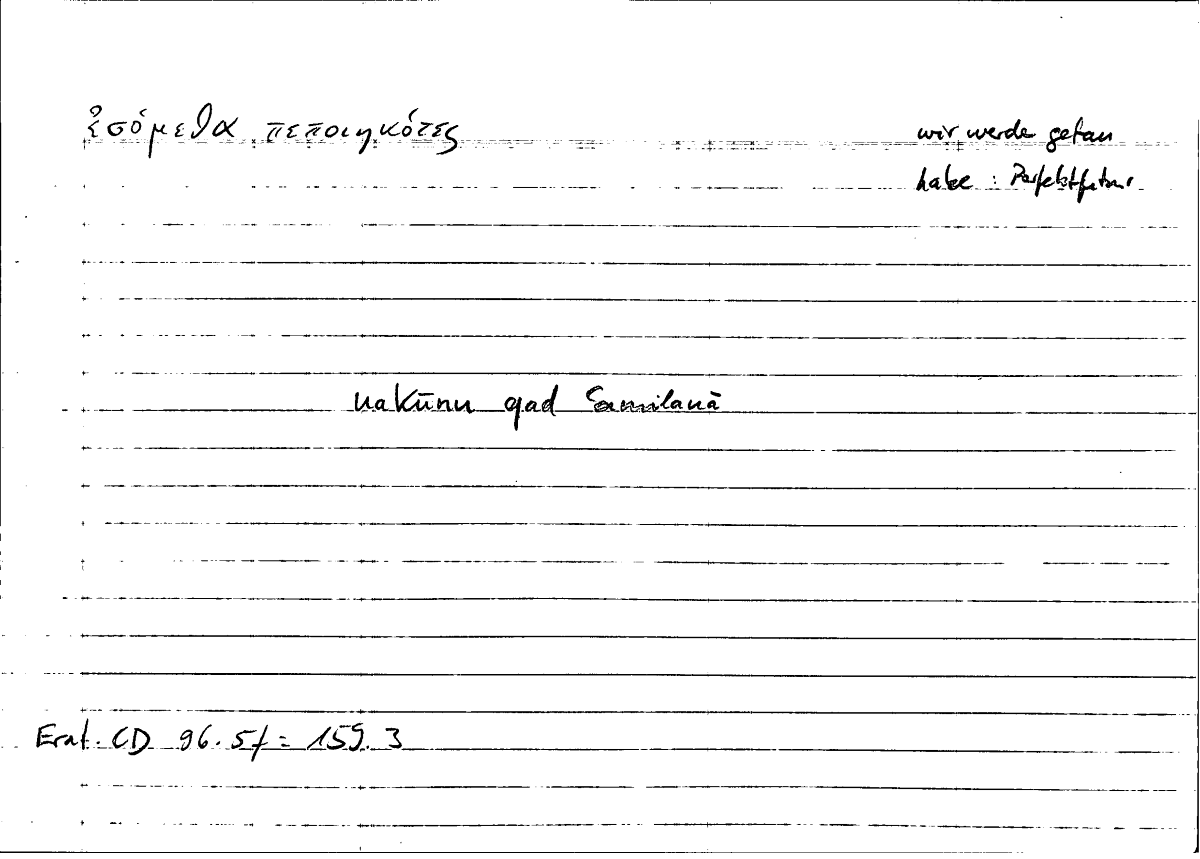 ἐσόμεθα πεποιηκότες
wir werde getan
habe : Perfektfutur
nakūnu qad ʿamilanā
Erat. CD 96.5f = 159.3